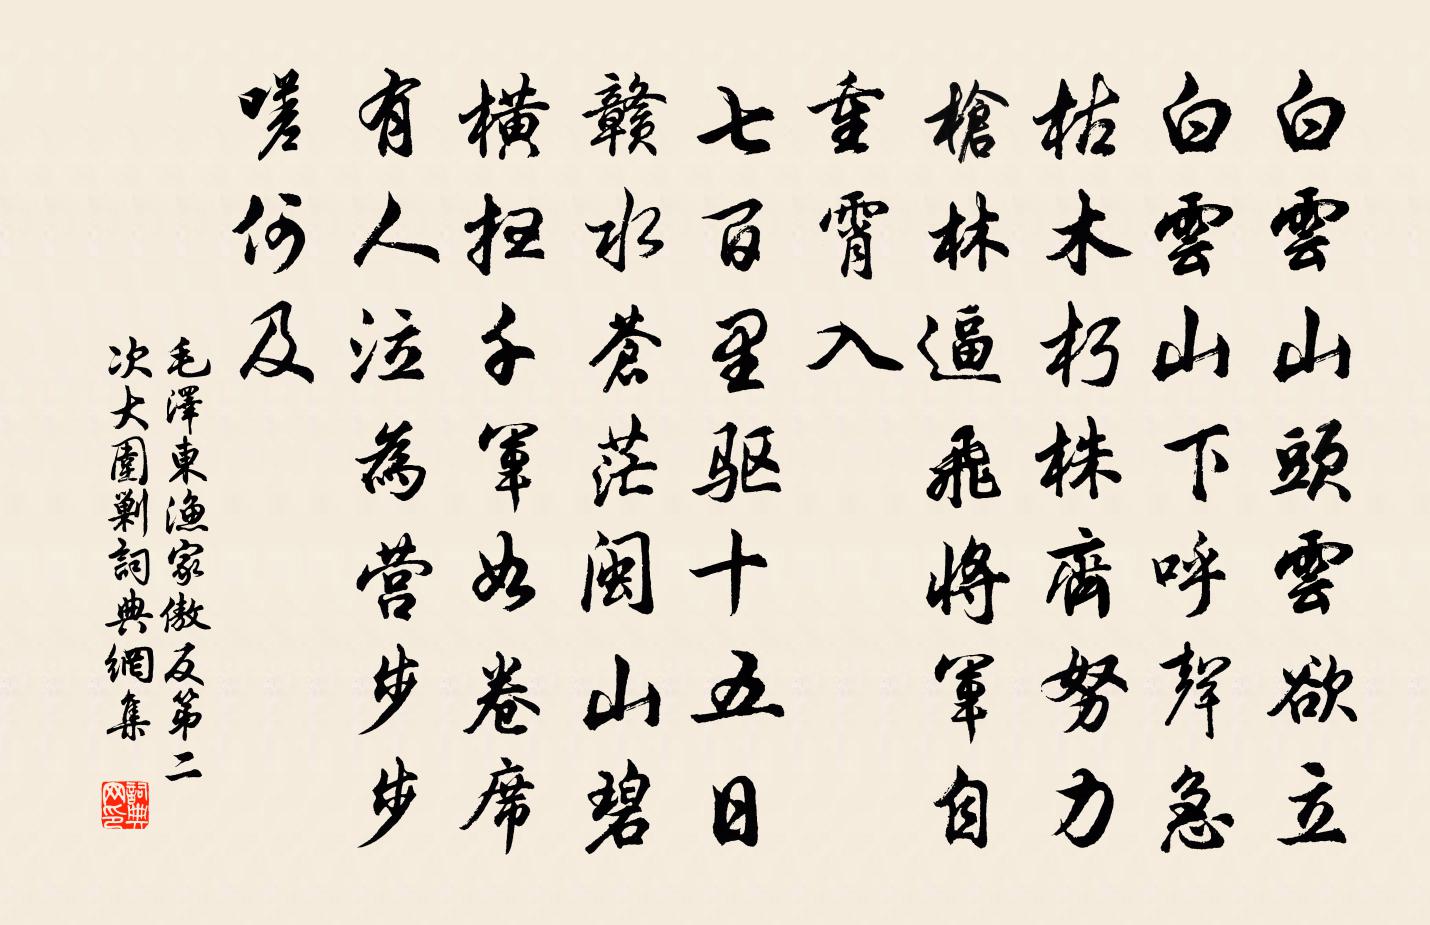 白雲山頭雲欲立
白雲山下呼聲急
枯木朽株齊努力
槍林逼飛將軍自
重霄入
七百里驱十五日
赣水蒼茫闽山碧
橫扫千軍如卷席
有人泣為营步步
嗟何及
毛澤東漁家傲反第二
次大圍剿詞典網集
詞典
网印